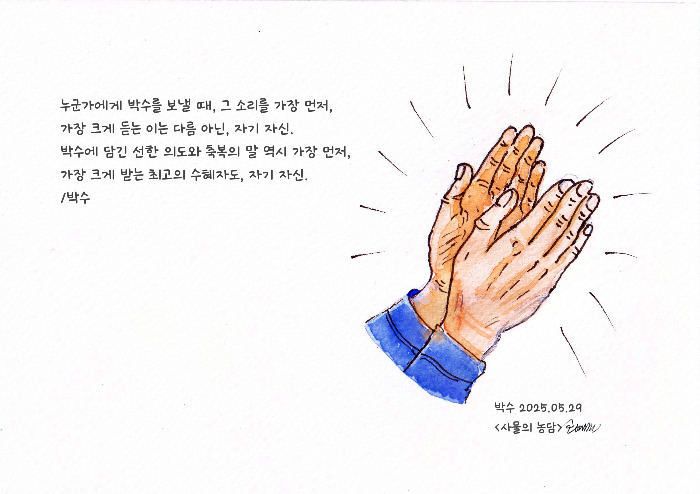 누군가에게 박수를 보낼 때, 그 소리를 가장 먼저,
가장 크게 듣는 이는 다름 아닌, 자기 자신.
박수에 담긴 선한 의도와 축복의 말 역시 가장 먼저,
가장 크게 받는 최고의 수혜자도, 자기 자신.
/박수
박수 2025.05.29
<사물의 농담>